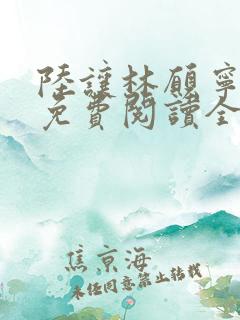 陸讓林願寧
免費閱讀全
焦京海
未任同意禁止转载